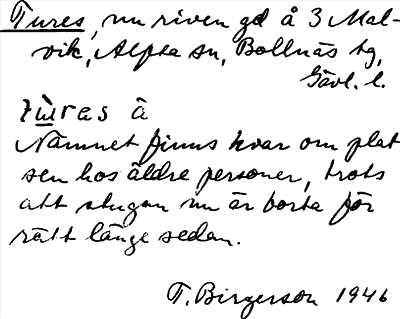 Tures, nu riven gd å 3 Mal-
vik, Alfta sn, Bollnäs tg,
Gävl. l.
tùras å
Namnet finns kvar om plat
sen hos äldre personer, trots
att stugan nu är borta för
rätt länge sedan.
T. Birgerson 1946